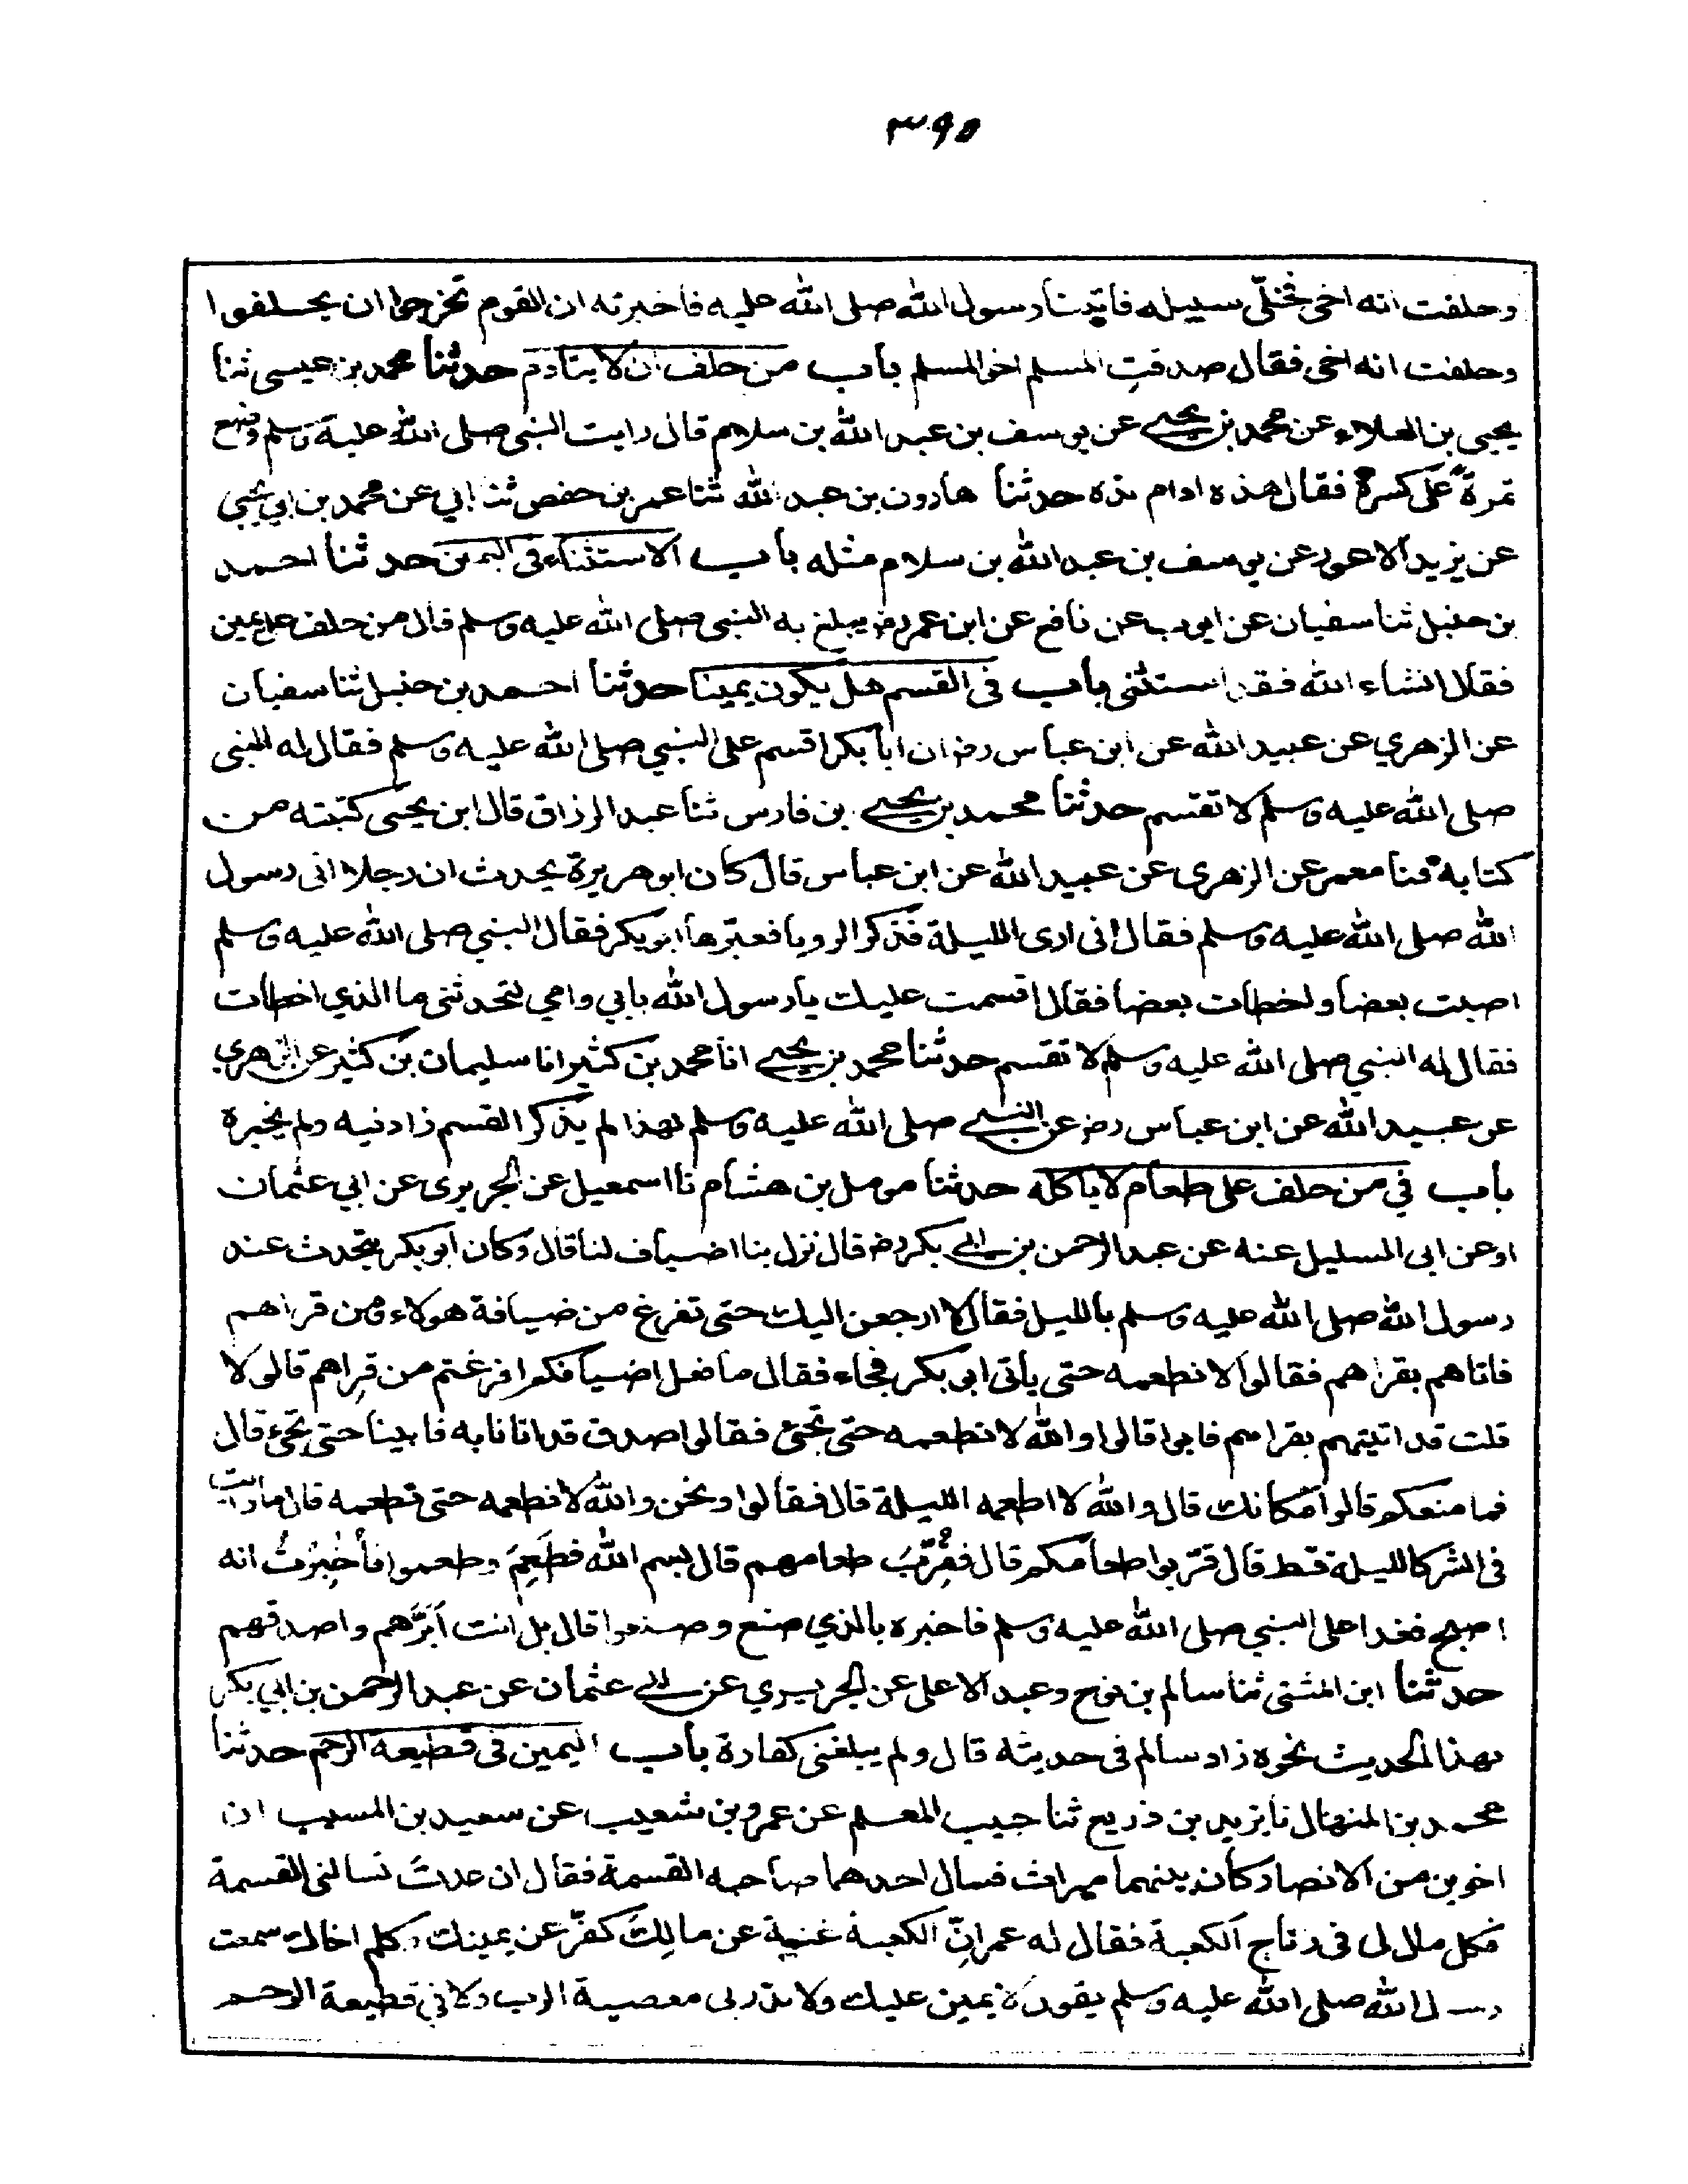 ٣٩٥
وحلفت انه اخي فخلّي سبيله فاتينا رسول الله صلى الله عليه فاخبرته ان القوم تخرجوا ان يحلفوا
وحلفت انه اخي فقال صدقتِ المسلم اخو المسلم باب من حلف ان لا يتادم حدثنا محمد بن عيسى ثنا
يحيى بن العلاء عن محمد بن يحيى عن يوسف بن عبد الله بن سلام قال رايت النبي صلى الله عليه وسلم وضع
تمرةً على كسرة فقال هذه ادام هذه حدثنا هارون بن عبد الله ثنا عمر بن حفص ثنا ابي عن محمد بن ابي يحيى
عن يزيد الاعور عن يوسف بن عبد الله بن سلام مثله باب الاستثناء في اليمين حدثنا احمد
بن حنبل ثنا سفيان عن ايوب عن نافع عن ابن عمر رض يبلغ به النبي صلى الله عليه وسلم قال من حلف على يمين
فقال انشاء الله فقد استثنى باب في القسم هل يكون يمينا حدثنا احمد بن حنبل ثنا سفيان
عن الزهري عن عبيد الله عن ابن عباس رض ان ابا بكر اقسم على النبي صلى الله عليه وسلم فقال له النبي
صلى الله عليه وسلم لا تقسم حدثنا محمد بن يحيى بن فارس ثنا عبد الرزاق قال ابن يحيى كتبته من
كتابه قنا معمر عن الزهري عن عبيد الله عن ابن عباس قال كان ابو هريرة يحدث ان رجلا اتى رسول
الله صلى الله عليه وسلم فقال اني ارى الليلة فذكر الرويا فعبّرها ابو بكر فقال النبي صلى الله عليه وسلم
اصبت بعضا واخطات بعضا فقال اقسمت عليك يا رسول الله بابي وامي لتحدثني ما الذي اخطات
فقال له النبي صلى الله عليه وسلم لا تقسم حدثنا محمد بن يحيى انا محمد بن كثير انا سليمان بن كثير عن الزهري
عن عبيد الله عن ابن عباس رض عن النبي صلى الله عليه وسلم بهذا لم يذكر القسم زاد فيه ولم يخبره
باب في من حلف على طعام لا ياكله حدثنا مومل بن هشام نا اسمعيل عن الجريري عن ابي عثمان
او عن ابى السليل عنه عن عبد الرحمن بن ابي بكر رض قال نزل بنا اضياف لنا قال وكان ابو بكر يتحدث عند
رسول الله صلى الله عليه وسلم بالليل فقال لا ارجعن اليك حتى تفرغ من ضيافة هولاء ومن قراهم
فاتاهم بقراهم فقالوا لا نطعمه حتى ياتى ابى بكر فجاء فقال ما فعل اضيافكم افرغتم من قِراهم قالوا لا
قلت قد اتيتهم بقراهم فابوا قالوا والله لا نطعمه حتى تجئ فقالوا صدق قد اتانا به فابينا حتى تجئ قال
فما منعكم قالوا مكانك قال والله لا اطعمه الليلة قال فقالوا ونحن والله لا نطعمه حتى تطعمه قال ما رايت
في الشر كالليلة قط قال قرّبوا طعامكم قال فقُرِّبَ طعامهم قال بسم الله فطَعِمَ وطعموا فأُخْبِرْتُ انه
اصبح فغدا على النبي صلى الله عليه وسلم فاخبره بالذي صنع وصنعوا قال بل انت اَبَرّهم واصدقهم
حدثنا ابن المثنى ثنا سالم بن نوح وعبد الاعلى عن الجريري عن ابي عثمان عن عبد الرحمن بن ابي بكر
بهذا الحديث نحوه زاد سالم في حديثه قال ولم يبلغني كفارة باب اليمين في قطيعة الرحم حدثنا
محمد بن المنهال نا يزيد بن ذريع ثنا حبيب المعلم عن عمرو بن شعيب عن سعيد بن المسيب ان
اخوين من الانصار كان بينهما ميراث فسال احدهما صاحبه القسمة فقال ان عدتَ تسالني القسمة
فكل مال لى في رتاج الكعبة فقال له عمر انّ الكعبة غنية عن مالِكَ كفّر عن يمينك وكلم اخاك سمعت
رسول الله صلى الله عليه وسلم يقول لا يمين عليك ولا نذر فى معصية الرب ولا في قطيعة الرحم